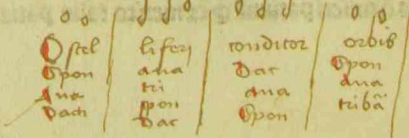 Ostel lifer conditor orbis
Spon ana Dac Spon
Ana tri ana Ana
Dacti spon Spon tribã
Dac